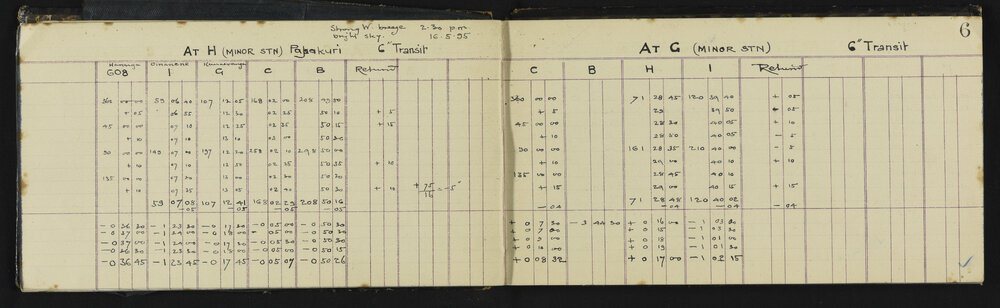 Strong W. breeze 2-30 pm
bright sky. 16.5.95
6
AT H (MINOR STN) Papakuri 6" Transit
AT G (MINOR STN) 6" Transit
608 I G C B Return
C B H I Return
360 00 00 59 06 40 107 12 05 168 02 00 208 49 50
+ 05 06 55 12 30 02 25 50 10 + 5
45 00 00 07 10 12 25 02 35 50 15 + 15
+ 10 07 10 13 10 03 00 50 20
90 00 00 149 07 00 197 12 20 258 02 10 298 50 00
+ 10 07 10 12 50 02 35 50 35 + 10
135 00 00 07 20 13 00 02 20 50 20
+ 10 07 25 13 05 02 40 50 30 + 10 + 75/16 = -5"
59 07 08 107 12 41 168 02 29 208 50 16
-05 -05 -05 -05
-0 36 30 -1 23 30 -0 17 30 -0 05 00 -0 50 30
-0 37 00 -1 24 00 -0 18 00 -0 05 00 -0 50 30
-0 37 00 -1 24 00 -0 17 30 -0 05 30 -0 50 30
-0 36 30 -1 23 30 -0 18 00 -0 05 00 -0 50 15
-0 36 45 -1 23 45 -0 17 45 -0 05 07 -0 50 26
360 00 00 71 28 45 120 39 40 + 05
+ 5 29 39 50 + 05
45 00 00 28 30 40 05 + 10
+ 10 28 50 40 05 - 5
90 00 00 161 28 35 210 40 00 - 5
+ 10 29 00 40 10 + 10
135 00 00 28 45 40 10
+ 15 29 00 40 15 + 15
71 28 48 120 40 02
-04 -04 -04 -04
+0 7 30 -3 44 30 +0 16 00 -1 03 30
+0 7 30 +0 15 -1 03 30
+0 9 00 +0 18 -1 01
+0 10 00 +0 19 -1 01 30
+0 08 32 +0 17 00 -1 02 15